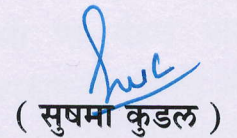 ( सुषमा कुडल )